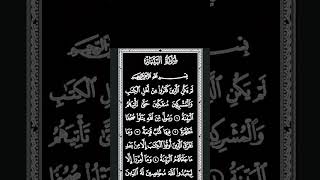 سُورَةُ الْبَيِّنَةِ
بِسْمِ اللَّهِ الرَّحْمَٰنِ الرَّحِيمِ
لَمْ يَكُنِ الَّذِينَ كَفَرُوا مِنْ أَهْلِ الْكِتَٰبِ
وَالْمُشْرِكِينَ مُنفَكِّينَ حَتَّىٰ تَأْتِيَهُمُ
الْبَيِّنَةُ ١ رَسُولٌ مِّنَ اللَّهِ يَتْلُوا صُحُفًا
مُّطَهَّرَةً ٢ فِيهَا كُتُبٌ قَيِّمَةٌ ٣ وَمَا
تَفَرَّقَ الَّذِينَ أُوتُوا الْكِتَٰبَ إِلَّا مِنۢ بَعْدِ
مَا جَاءَتْهُمُ الْبَيِّنَةُ ٤ وَمَا أُمِرُوا إِلَّا
لِيَعْبُدُوا اللَّهَ مُخْلِصِينَ لَهُ الدِّينَ